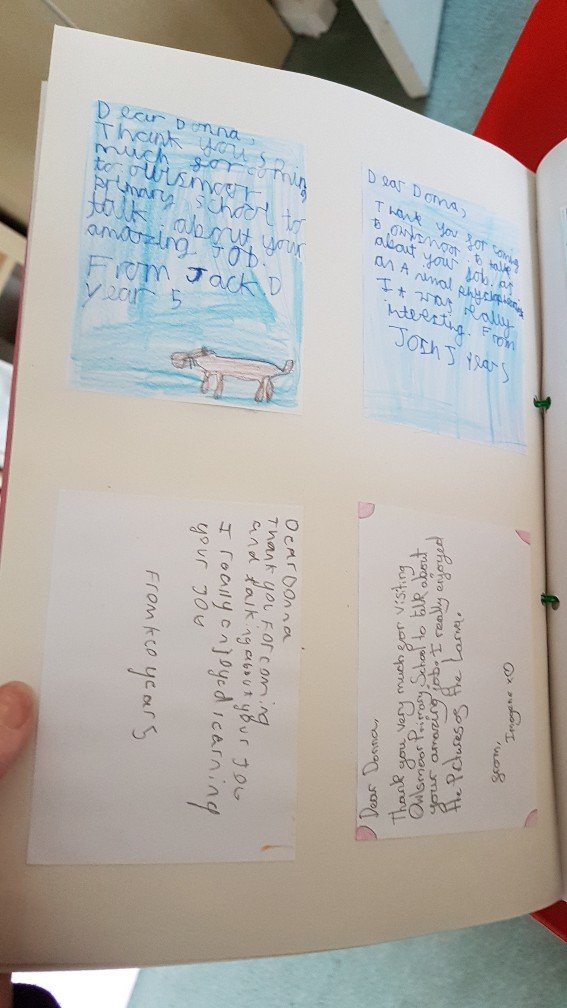 Dear Donna,
Thank you so
much for coming
to owlsmoor
primary school to
talk about your
amazing Job.
From Jack D
year 5
Dear Donna,
Thank you for coming
to owlsmoor to talk
about your Job. as
an A renal
I t was really
interesting. From
Josh J year 5
Dear Donna
Thank you for coming
and talking about your Jou
I really enjoyed learning
your Jou
From year 5
Dear Donna,
Thank you very much for visiting
Owlsmoor Primary School to talk about
your amazing job. I really enjoyed
the Pictures of the
from,
Imogene